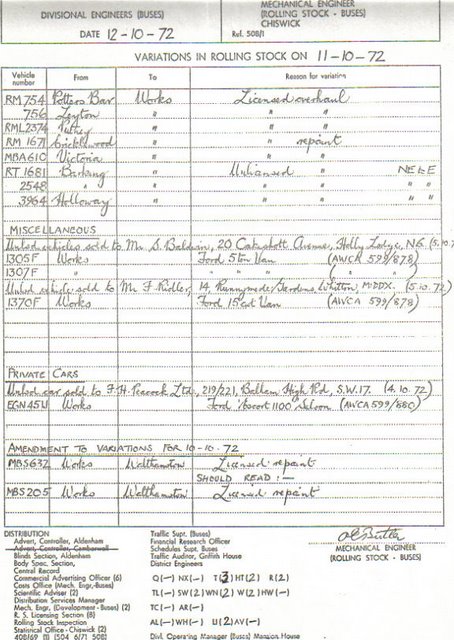 DIVISIONAL ENGINEERS (BUSES)
MECHANICAL ENGINEER
(ROLLING STOCK - BUSES)
CHISWICK
DATE 12-10-72
Ref. 508/1
VARIATIONS IN ROLLING STOCK ON 11-10-72
Vehicle number From To Reason for variation
RM 754 Potters Bar Works Licensed overhaul
756 Leyton " " "
RML 2374 Putney " " "
RM 1671 Cricklewood " " repaint
MBA 610 Victoria " " "
RT 1681 Barking " Unlicensed " NELE
2548 " " " " " "
3964 Holloway " " " " "
MISCELLANEOUS
Unlicd vehicles sold to Mr. S. Baldwin, 20 Cakeshott Avenue, Holly Lodge, N6. (5.10.72
1305F Works Ford 5 ton Van (AWCA 599/878)
1307F " " " " ( " " )
Unlicd vehicle sold to Mr F. Ridler, 14, Runnymede Gardens Whitton, MIDDX. (5.10.72)
1370F Works Ford 15cwt Van (AWCA 599/878)
PRIVATE CARS
Unlicd car sold to F.H. Peacock Ltd, 219/221, Balham High Rd, S.W.17. (4.10.72)
EGN 45U Works Ford Escort 1100 Saloon (AWCA 599/880)
AMENDMENT TO VARIATIONS FOR 10-10-72
MBS 632 Works Walthamstow Licensed repaint
SHOULD READ :-
MBS 205 Works Walthamstow Licensed repaint
DISTRIBUTION
Advert, Controller, Aldenham
Advert, Controller, Camberwell
Blinds Section, Aldenham
Body Spec. Section,
Central Record
Commercial Advertising Officer (6)
Costs Office (Mech. Engr.-Buses)
Scientific Adviser (2)
Distribution Services Manager
Mech. Engr, (Development - Buses) (2)
R. S. Licensing Section (8)
Rolling Stock Inspection
Statistical Office - Chiswick (2)
408/69 (504 6/71 508)
Traffic Supt. (Buses)
Financial Research Officer
Schedules Supt. Buses
Traffic Auditor, Griffith House
District Engineers
Q(-) NX(-) T(3) HT(2) R(2)
TL(-) SW(2) WN(2) W(2) HW(-)
TC(-) AR(-)
AL(-) WH(-) U(2) AV(-)
Divl. Operating Manager (Buses) Mansion House
MECHANICAL ENGINEER
(ROLLING STOCK - BUSES)